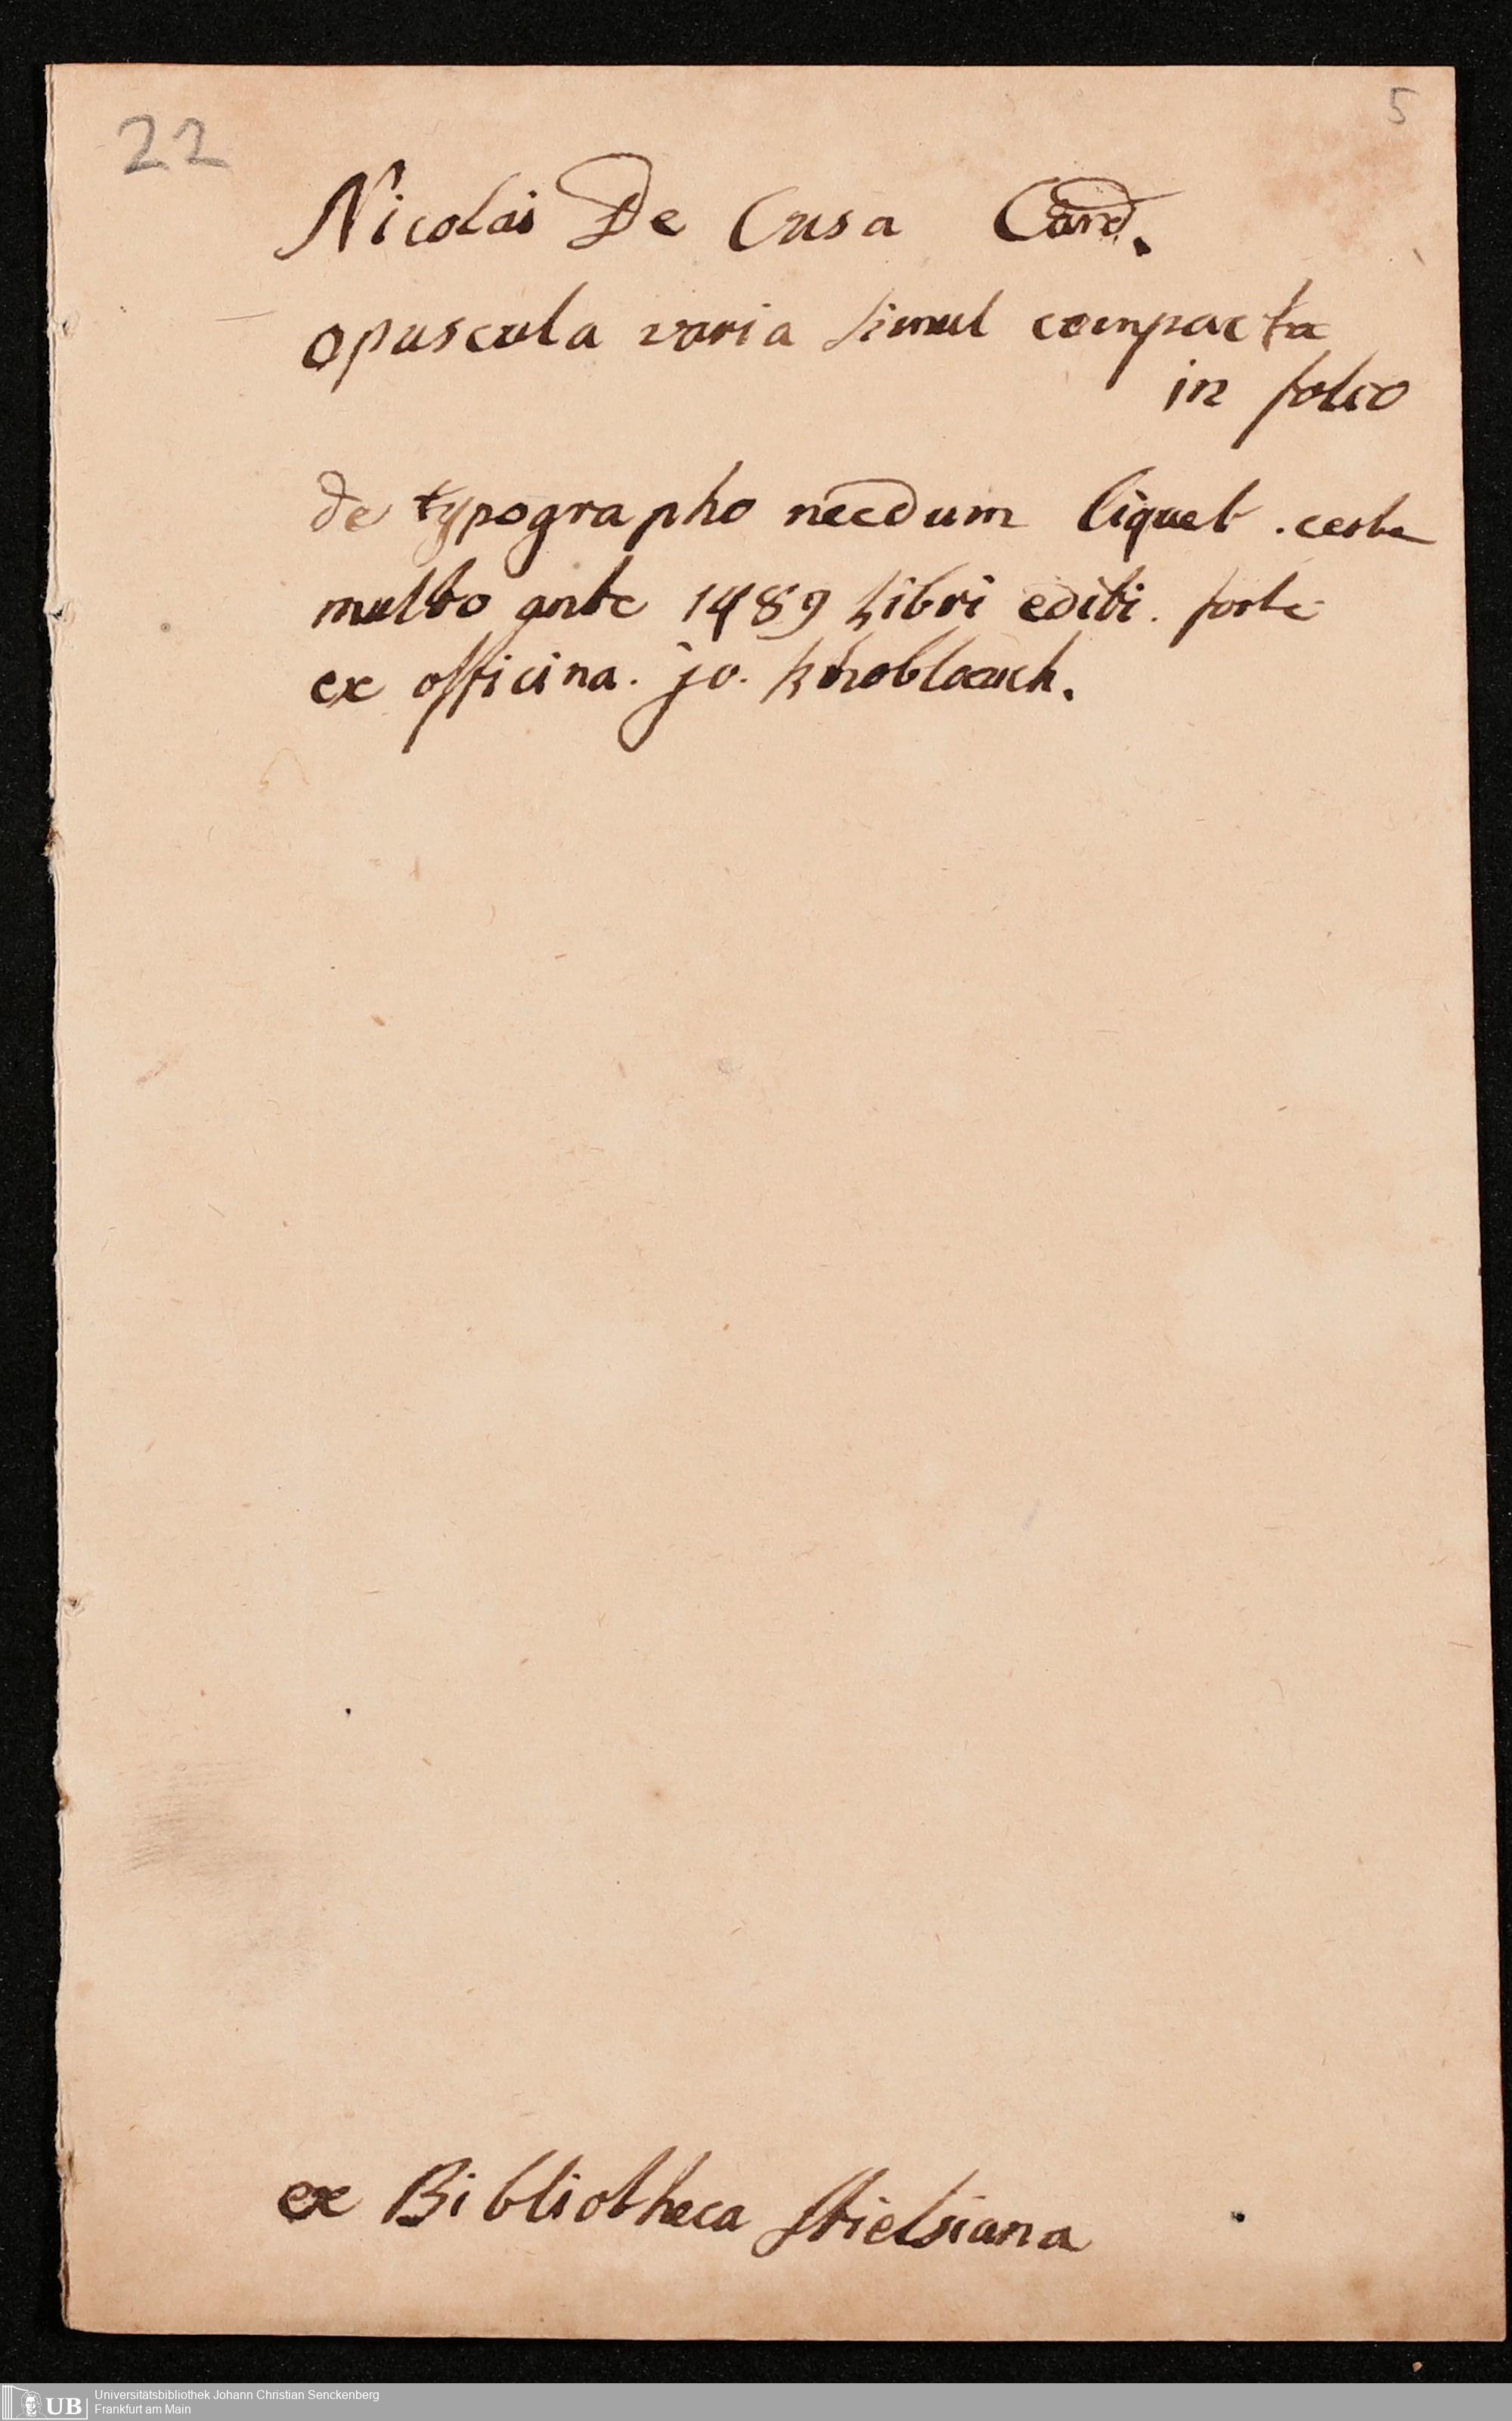 22
5
Nicolai De Cusa Card.
opuscula varia simul compacta
in folio
de typographo necdum liquet. certe
multo ante 1489 libri editi. forte
ex officina. jo. Knoblauch.
ex Bibliotheca Stielsiana
UB
Universitätsbibliothek Johann Christian Senckenberg
Frankfurt am Main